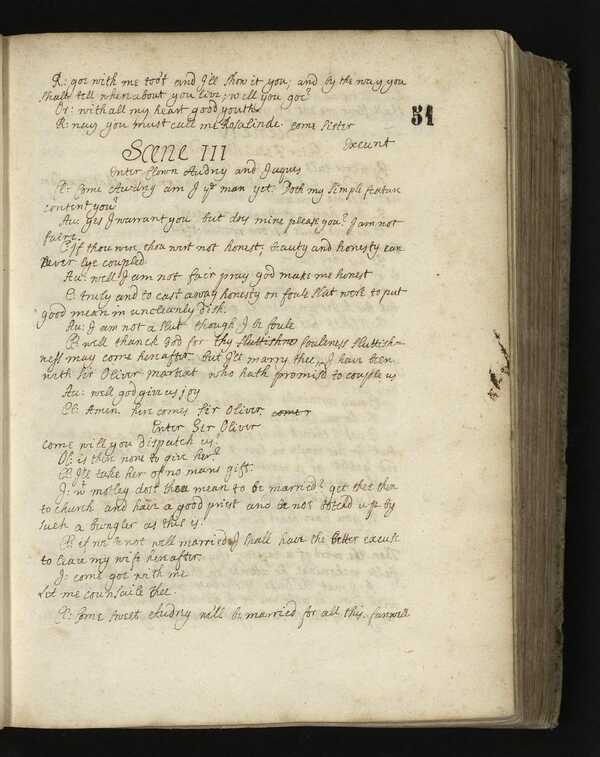 R: goe with me too't and I'll show it you; and by the way you
shall tell wheare about you live; will you goe?
Or: with all my heart good youth
R: nay you must call me Rosalinde. come sister
51
Exeunt
Scene III
Enter Clown Audry and Jaques
Cl: Come Audry am I yr man yet. Doth my simple feature
content you?
Au: yes I warrant you but doys mine please you? I am not
faire.
Cl: If thou wert thou wert not honest; beauty and honesty can
never lye coupled
Au: well I am not fair pray god make me honest
C: truly and to cast away honesty on foule slut were to put
good meat in uncleanly dish.
Au: I am not a slut though I be foule
Cl: well thanck God for thy sluttishno fouleness sluttish-
ness may come hereafter. but I'll marry thee, I have been
with Sir Oliver martext who hath promis'd to couple us
Au: well god give us joy
Cl: Amen. here comes Sir Oliver comer
Enter Ser Oliver
come will you dispatch us?
Ol: is there none to give her?
Cl: I'll take her of no mans gift.
J: wt motley dost thou mean to be married? get thee then
to church and have a good priest and be not botchd up by
such a bungler as this is.
Cl: if we be not well married I shall have the better excuse
to leave my wife hereafter.
J: come goe with me
Let me counsaile thee.
Cl: Come sweet Audry we'll be married for all this. farwell